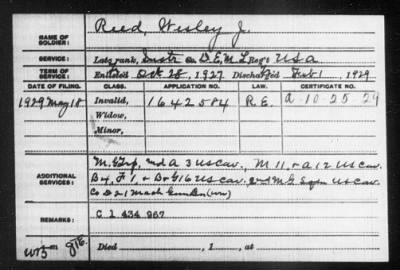 NAME OF SOLDIER: Reed, Wesley J.
SERVICE: Late rank, Instr on D.E.M.L. Reg't U S A
TERM OF SERVICE: Enlisted Oct 28, 1927 Discharged Feb 1, 1929
DATE OF FILING. CLASS. APPLICATION NO. LAW. CERTIFICATE NO.
1929 May 18 Invalid, 1642584 R.E. A-10-25-29
Widow,
Minor,
ADDITIONAL SERVICES: M. G. Trp, and A 3 US Cav, M 11, & A 12 US Cav.
B 4, F 1, & D & G 16 US Cav. 2nd M. G. Sqdn US Cav.
Co D 21 Mach Gun Bn
REMARKS: C 2 434 967
Died , 1 , at